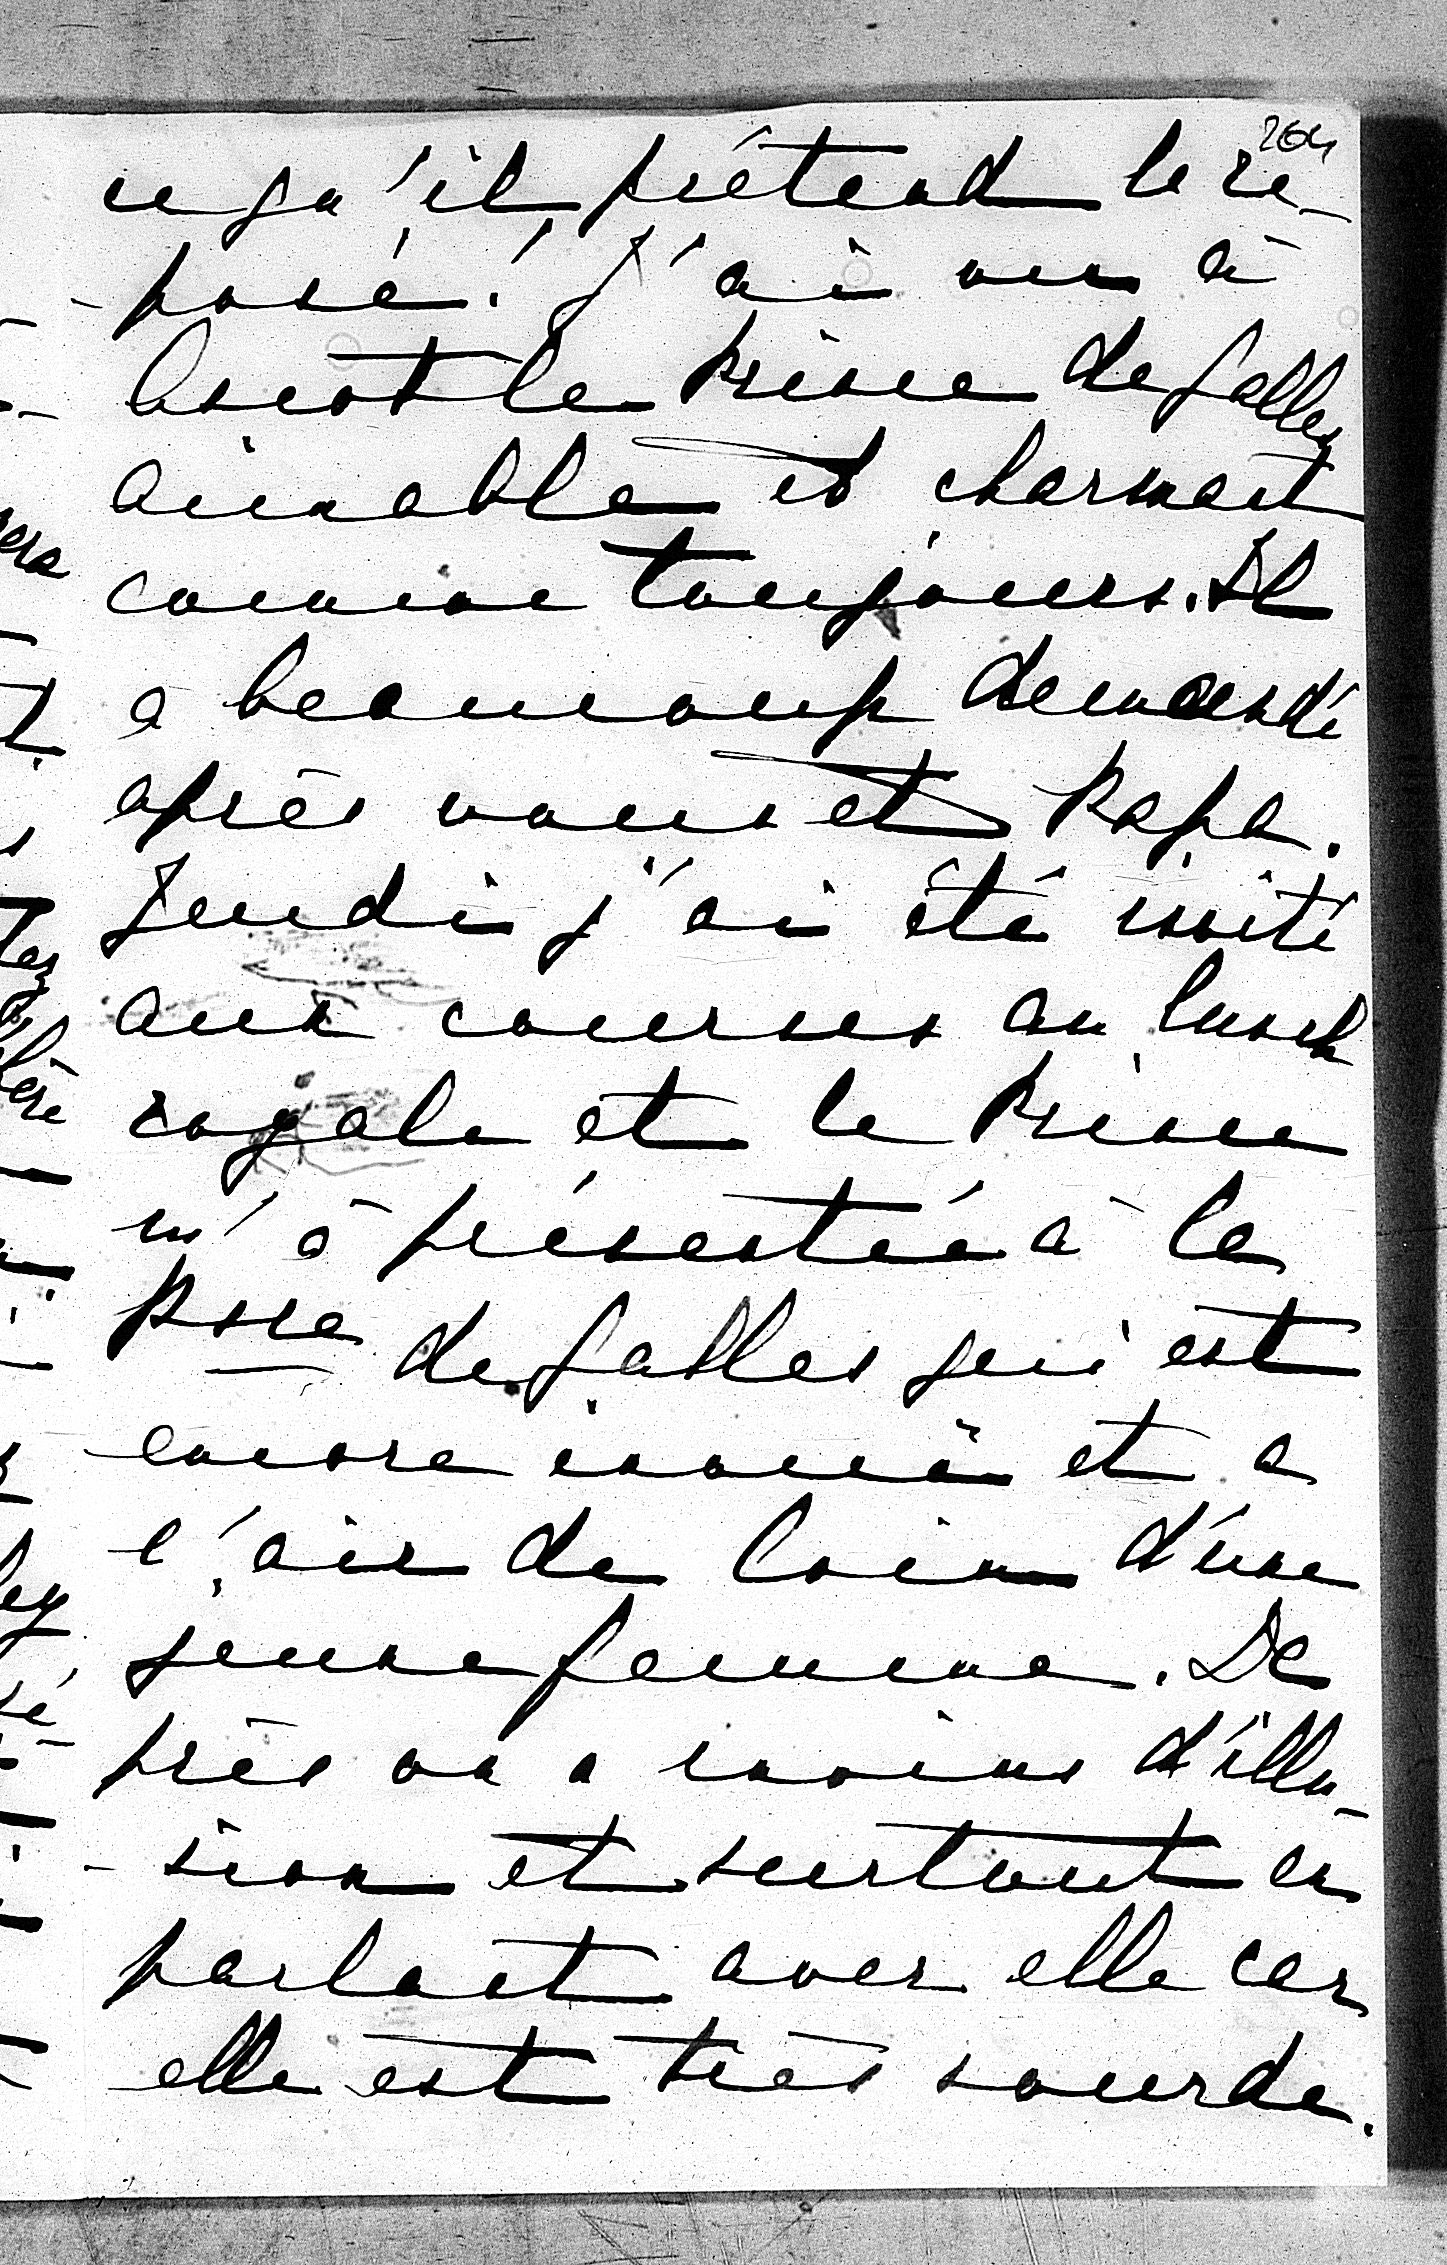 264
ce qu'il prétend le re-
-posé! J'ai vu à
Ascot le Prince de Galles
aimable et charmant
comme toujours. Il
a beaucoup demandé
après vous et Papa.
Jeudi j'ai été invité
aux courses au lunch
royale et le Prince
m'à présentée à la
Psse de Galles qui est
encore inouïe et a
l'air de loin d'une
jeune femme. De
près on a moins d'illu-
-sion et surtout en
parlant avec elle car
elle est très sourde.